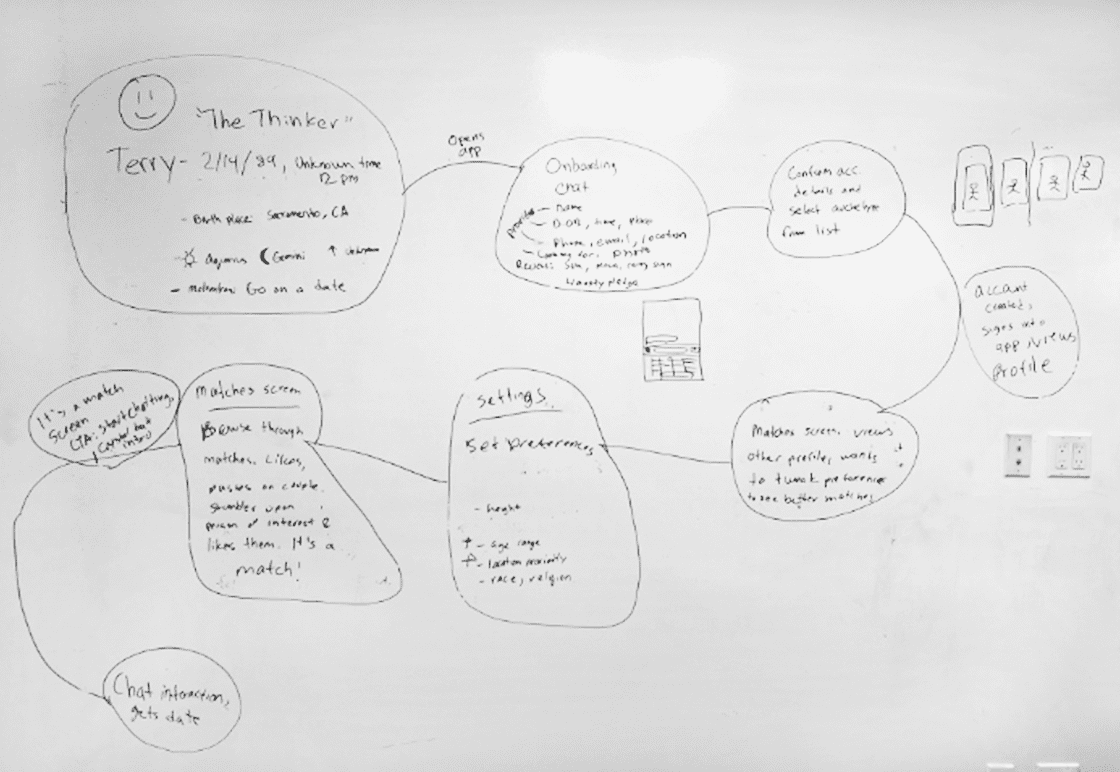 "The Thinker"
Terry - 2/14/89, Unknown time
12 pm
- Birth place: Sacramento, CA
Aquarius Gemini ↑ Unknown
- motivation: Go on a date
Opens
app
Onboarding
Chat
- Name
- D.O.B, time, place
- Phone, email, location
- Looking for, photo
Reveal: Sun, moon, rising sign
pledge
Confirm acc.
details and
select archetype
from list
account
created,
signs into
app, views
profile
Matches screen, views
other profiles, wants
to tweak preferences
to see better matches
settings
set preferences
- height
- age range
- location proximity
- race, religion
Matches screen
Browse through
matches. Likes,
passes on couple.
stumbles upon
person of interest &
likes them. It's a
match!
It's a match
screen
CTA: start chatting,
intro
Chat interaction,
gets date